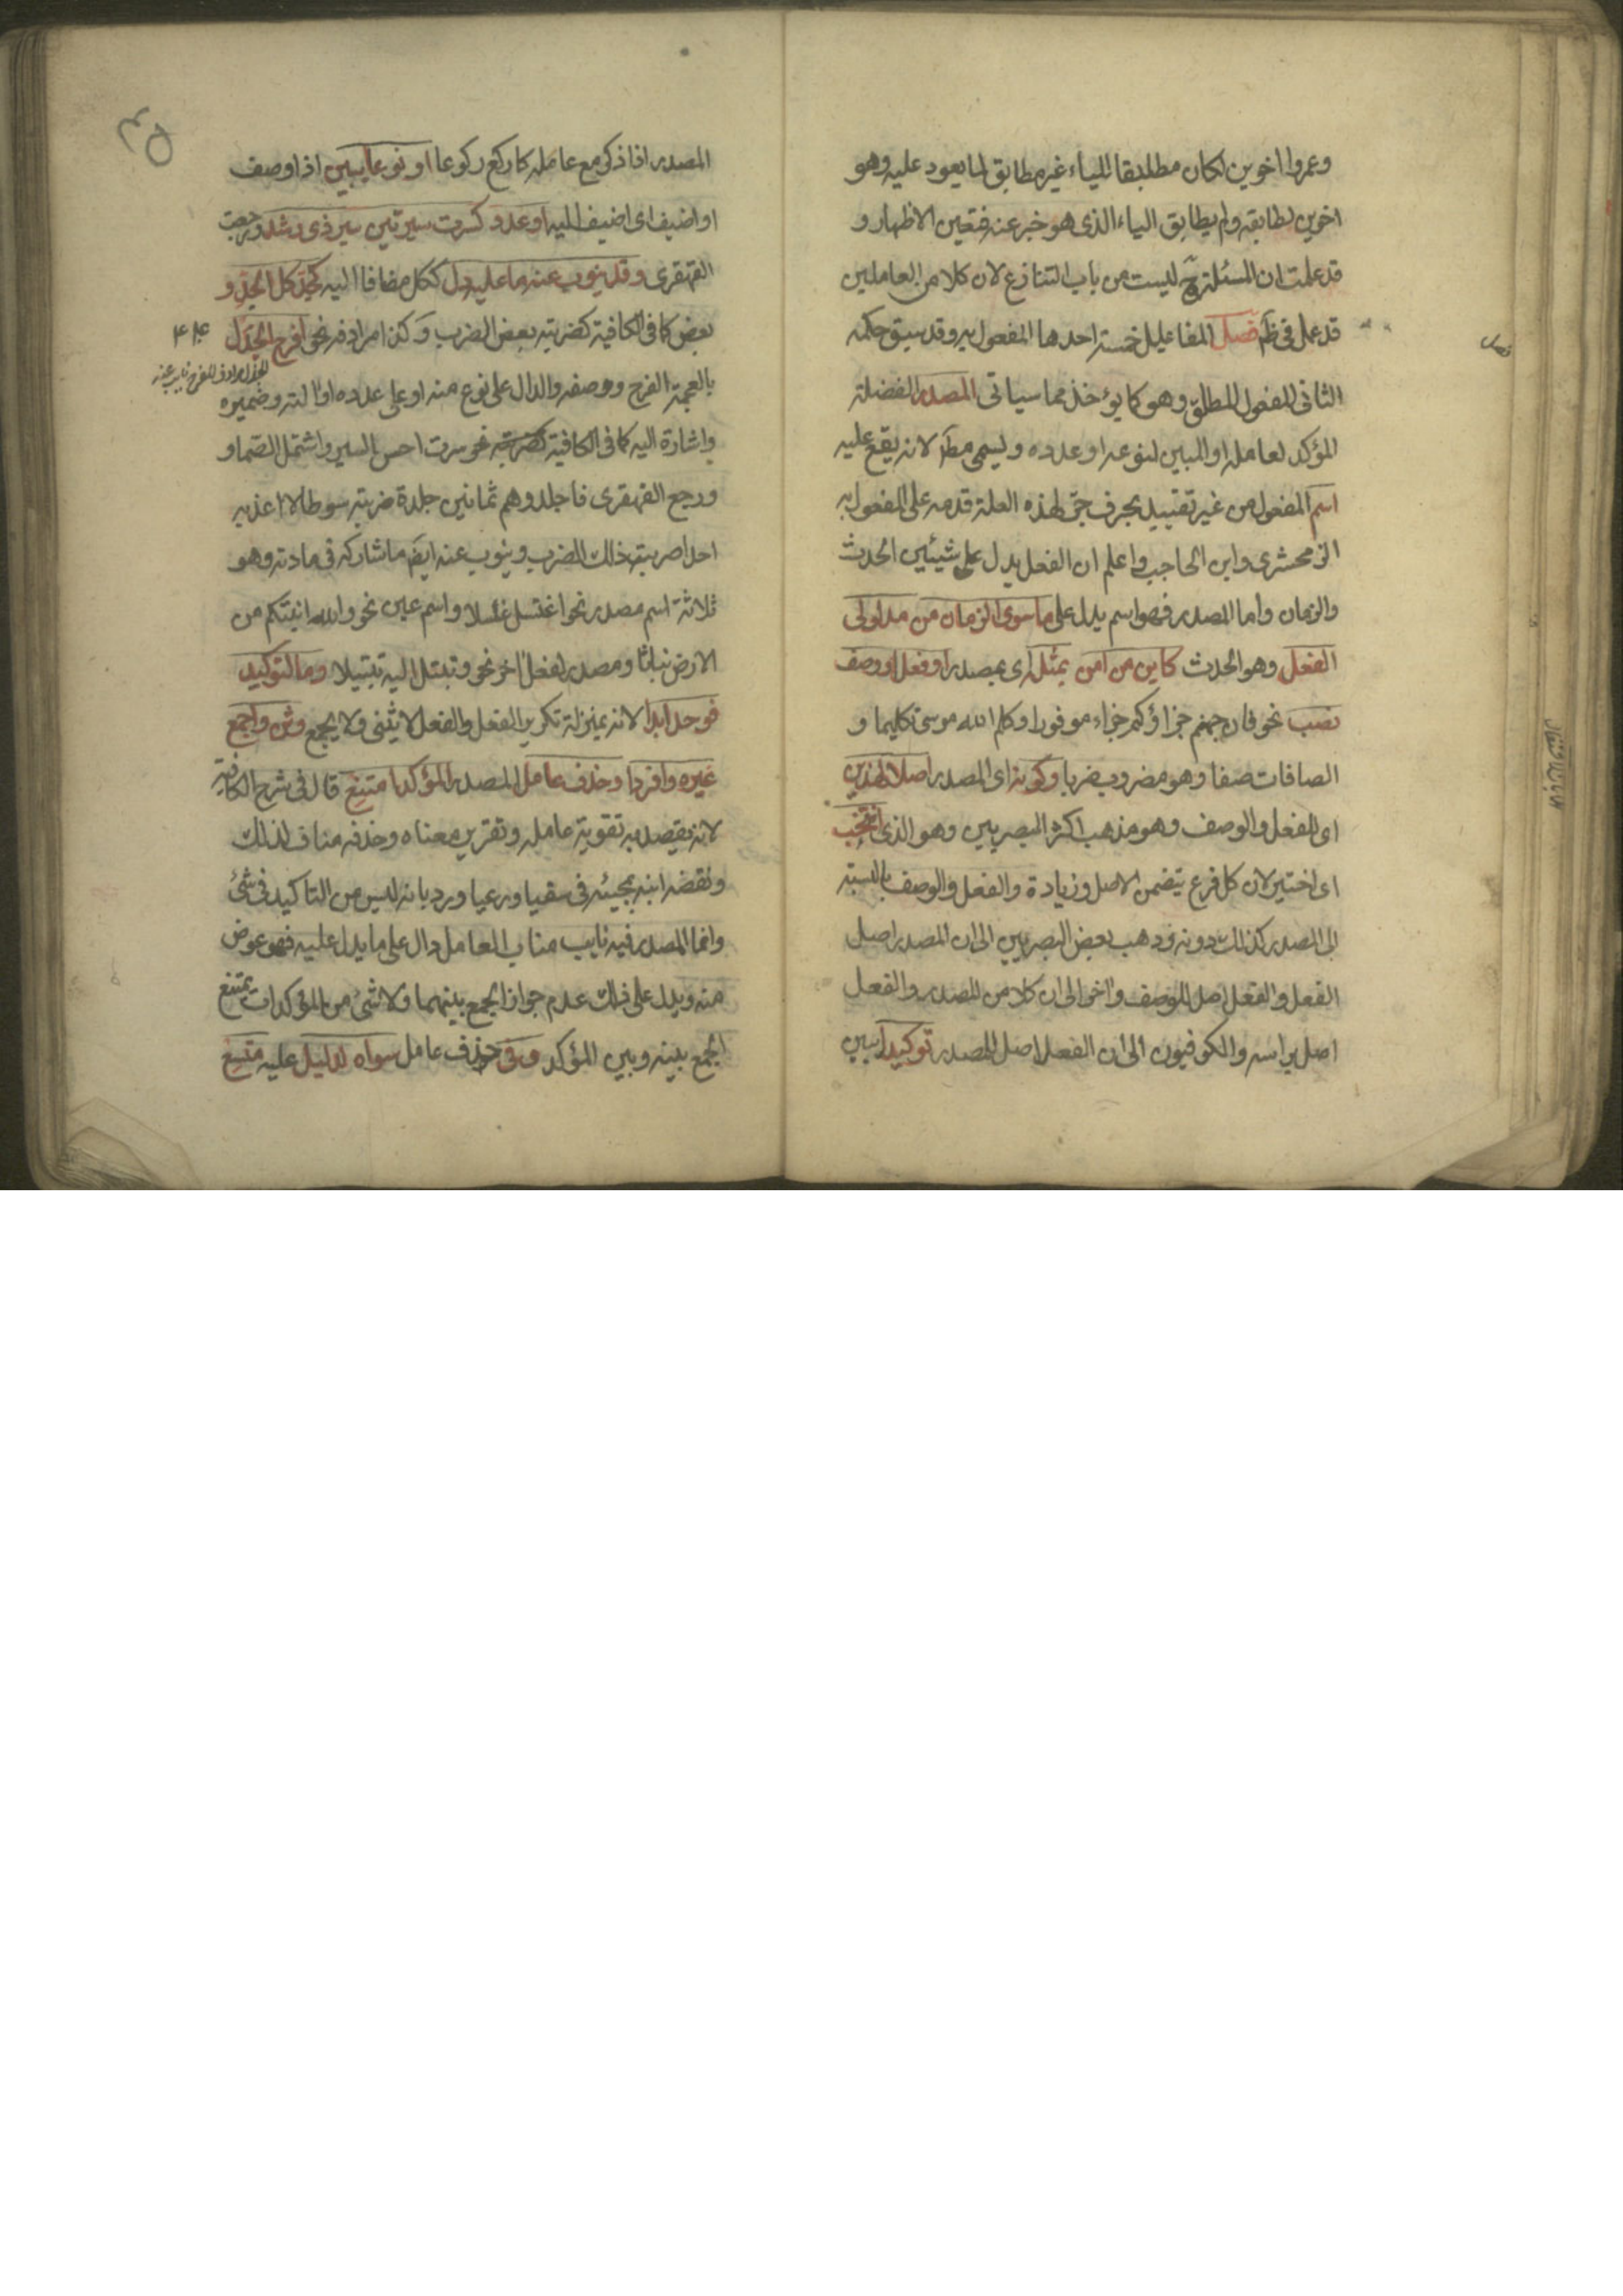 وعمروا اخوين لكان مطابقا للياء غير مطابق لما يعود عليه وهو
اخوين لطابقه ولم يطابق الياء الذى هو خبر عنه فتعين الاظهار و
قد علمت ان المسئلة ح ليست من باب التنازع لان كلا من العاملين
قد عمل فى ظم فصل المفاعيل خمسة احدها المفعول به وقد سبق حكمه
الثانى المفعول المطلق وهو كما يؤخذ مما سياتى المصدر الفضلة
المؤكد لعامله او المبين لنوعه او عدده ويسمى مط لانه يقع عليه
اسم المفعول من غير تقييد بحرف جر لهذه العلة قدمه على المفعول به
الزمحشرى وابن الحاجب واعلم ان الفعل يدل على شيئين الحدث
والزمان واما المصدر فهو اسم يدل على ما سوى الزمان من مدلولى
الفعل وهو الحدث كاين من امن بمثله اى بمصدر او فعل او وصف
نصب نحو فان جهنم جزاؤكم جزاء موفورا وكلم الله موسى تكليما و
الصافات صفا وهو مضروب ضربا وكونه اى المصدر اصلا لهذين
اى الفعل والوصف وهو مذهب اكثر البصريين وهو الذى انتخب
اى اختير لان كل فرع يتضمن الاصل وزيادة والفعل والوصف بالنسبة
الى المصدر كذلك دونه وذهب بعض البصريين الى ان المصدر اصل
الفعل والفعل اصل للوصف واخر الى ان كلا من المصدر والفعل
اصل براسه والكوفيون الى ان الفعل اصل للمصدر توكيدا يبين
فصل
٣٥
المصدر اذا ذكر مع عامله كاركع ركوعا او نوعا يبين اذا وصف
او اضيف اى اضيف اليه او عدد كسرت سيرتين سير ذى رشد ورجعت
القهقرى وقد ينوب عنه ما عليه دل ككل مضافا اليه كجد كل الجد و
بعض كما فى الكافية كضربته بعض الضرب وكذا مرادفه نحو افرح الجذل
بالعجمة الفرح ووصفه والدال على نوع منه او على عدده او الته وضميره
واشارة اليه كما فى الكافية كضربته نحو سرت احسن السير واشتمل الصما و
ورجع القهقرى فاجلدوهم ثمانين جلدة ضربته سوطا لا اعذبه
احدا ضربته ذلك الضرب وينوب عنه ايض ما شاركه فى مادته وهو
ثلاثة اسم مصدر نحو اغتسل غسلا واسم عين نحو والله انبتكم من
الارض نباتا ومصدر لفعل اخر نحو وتبتل اليه تبتيلا وما لتوكيد
فوحد ابدا لانه بمنزلة تكرير الفعل والفعل لا يثنى ولا يجمع وثن واجمع
غيره وافردا وحذف عامل المصدر المؤكد امتنع قال فى شرح الكافية
لانه يقصد به تقوية عامله وتقرير معناه وحذفه مناف لذلك
ونقضه ابنه بمجيئه فى سقيا ورعيا ورد بانه ليس من التاكيد فى شئ
وانما المصدر فيه نايب مناب العامل دال على ما يدل عليه فهو عوض
منه ويدل على ذلك عدم جواز الجمع بينهما ولا شئ من المؤكدات يمتنع
الجمع بينه وبين المؤكد وفى حذف عامل سواه لدليل عليه متسع